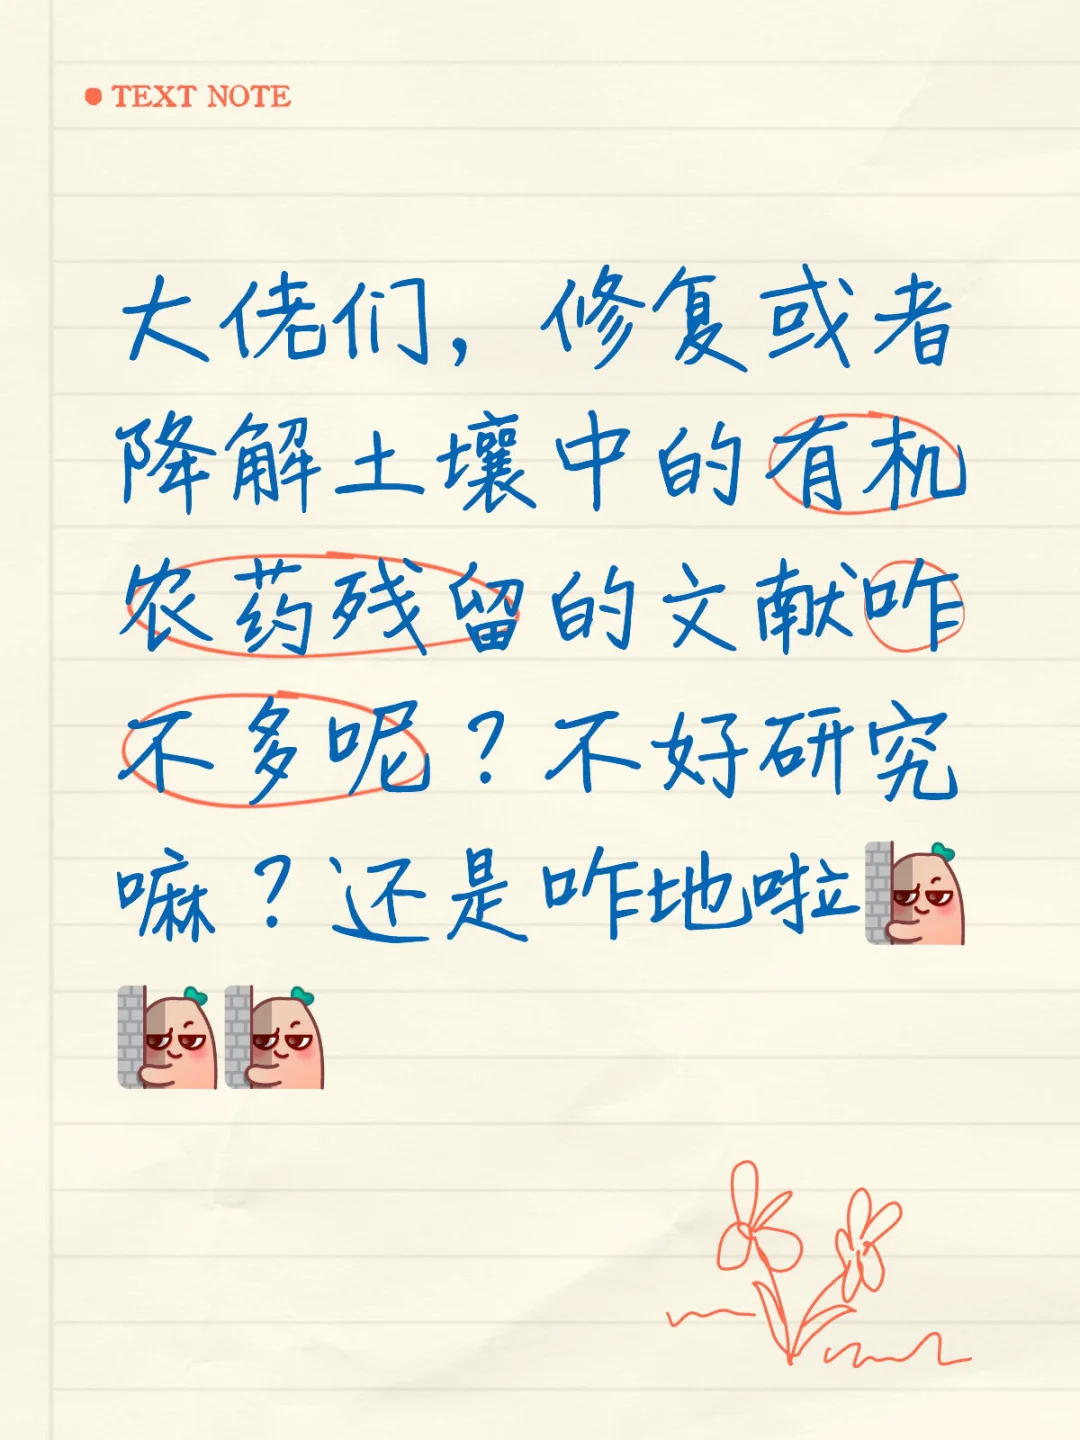 TEXT NOTE
大佬们，修复或者
降解土壤中的有机
农药残留的文献咋
不多呢？不好研究
嘛？还是咋地啦